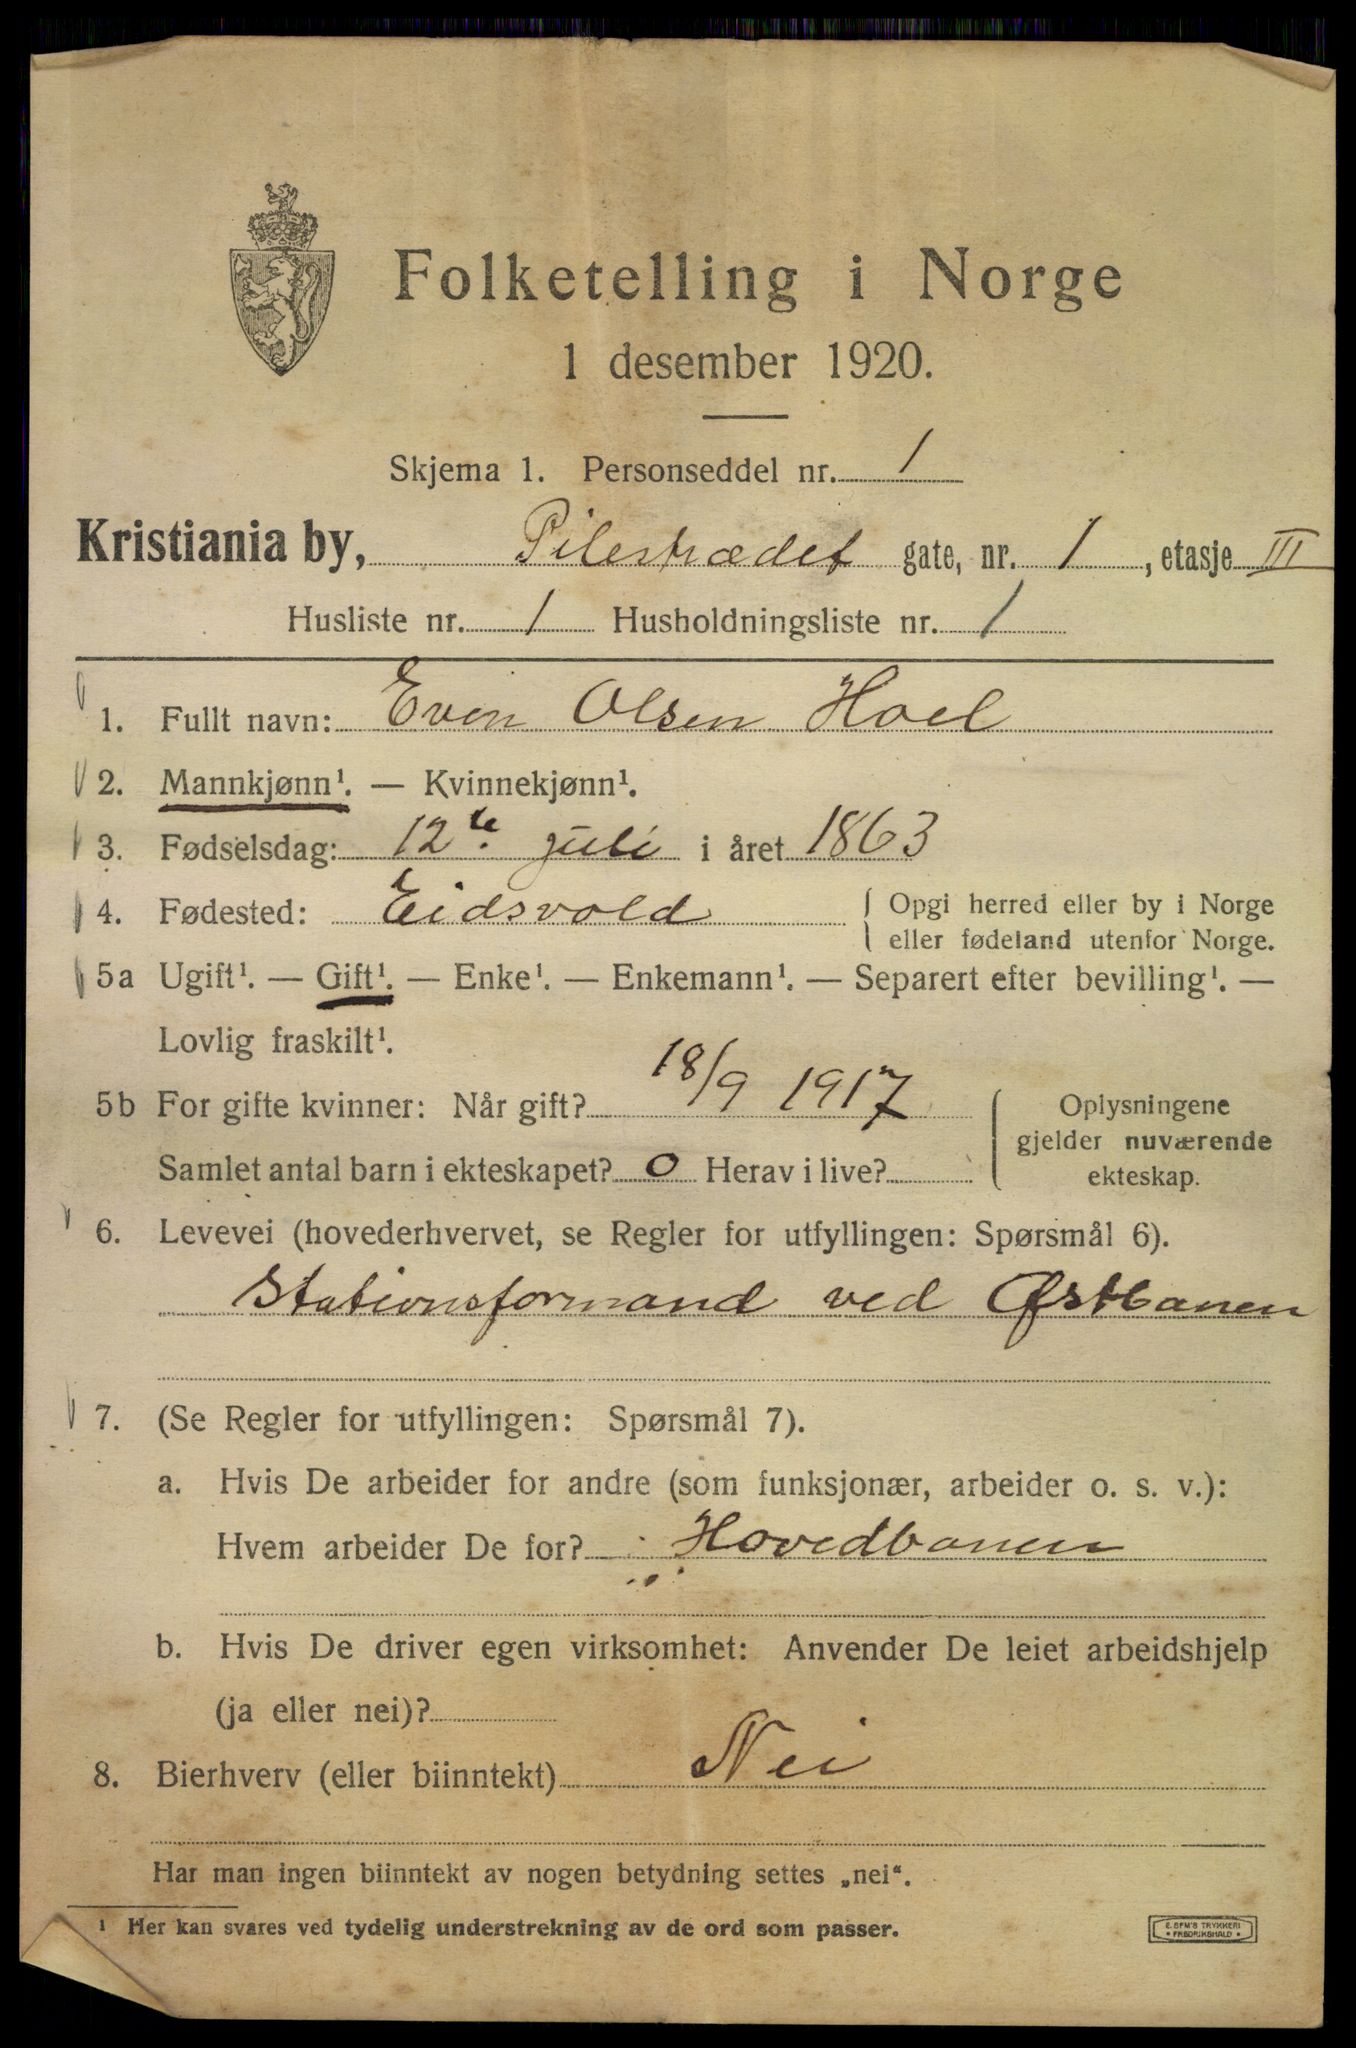 Folketelling i Norge
1 desember 1920.
Skjema 1. Personseddel nr. 1
Kristiania by, Pilestrædet gate, nr. 1, etasje III
Husliste nr. 1 Husholdningsliste nr. 1
1. Fullt navn: Even Olsen Hoel
2. Mannkjønn¹. — Kvinnekjønn¹.
3. Fødselsdag: 12te juli i året 1863
4. Fødested: Eidsvold { Opgi herred eller by i Norge
eller fødeland utenfor Norge.
5a Ugift¹. — Gift¹. — Enke¹. — Enkemann¹. — Separert efter bevilling¹. —
Lovlig fraskilt¹.
5b For gifte kvinner: Når gift? 18/9 1917
Samlet antal barn i ekteskapet? 0 Herav i live?
{ Oplysningene
gjelder nuværende
ekteskap.
6. Levevei (hovederhvervet, se Regler for utfyllingen: Spørsmål 6).
Stationsformand ved Østbanen
7. (Se Regler for utfyllingen: Spørsmål 7).
a. Hvis De arbeider for andre (som funksjonær, arbeider o. s. v.):
Hvem arbeider De for? Hovedbanen
b. Hvis De driver egen virksomhet: Anvender De leiet arbeidshjelp
(ja eller nei)?
8. Bierhverv (eller biinntekt) Nei
Har man ingen biinntekt av nogen betydning settes „nei“.
¹ Her kan svares ved tydelig understrekning av de ord som passer.
E. SEM'S TRYKKERI
* FREDRIKSHALD *